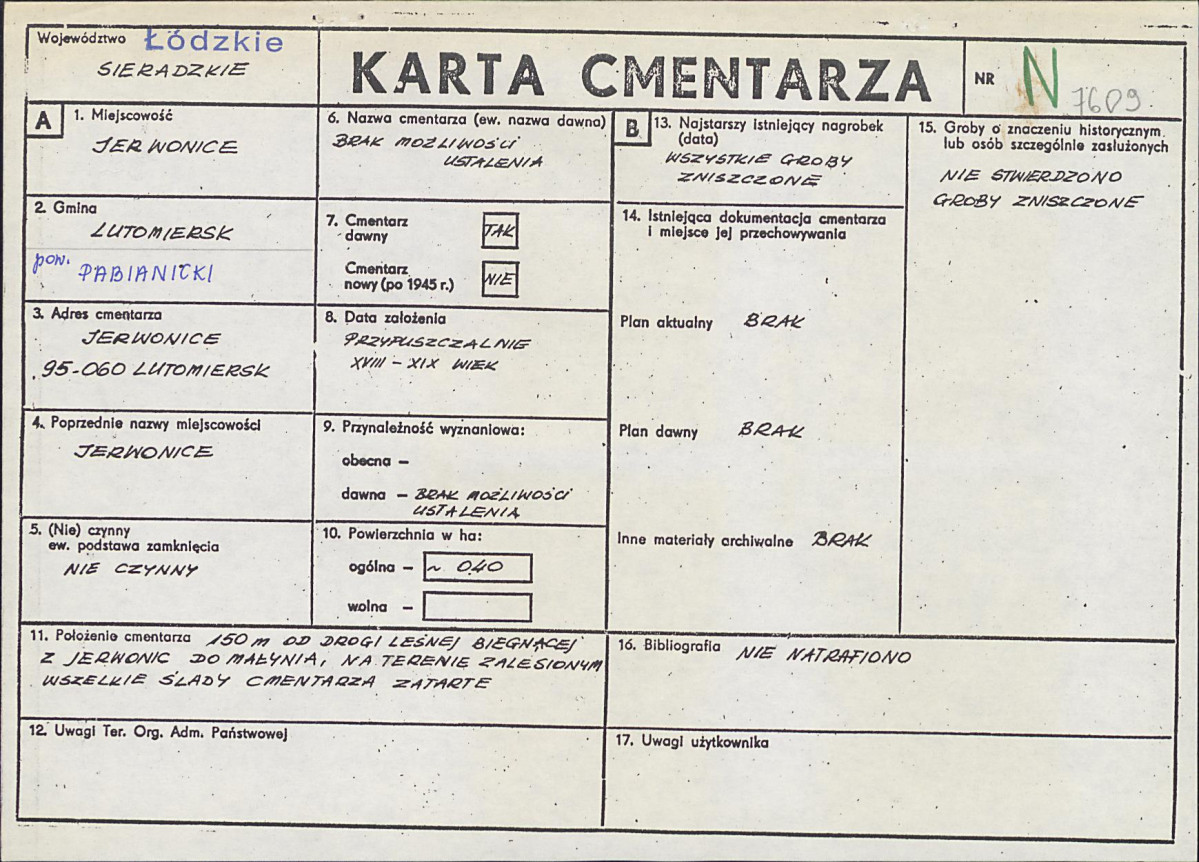 Województwo Łódzkie
SIERADZKIE
KARTA CMENTARZA
NR N 7609
A
1. Miejscowość
JERWONICE
2. Gmina
LUTOMIERSK
pow. PABIANICKI
3. Adres cmentarza
JERWONICE
95-060 LUTOMIERSK
4. Poprzednie nazwy miejscowości
JERWONICE
5. (Nie) czynny
ew. podstawa zamknięcia
NIE CZYNNY
6. Nazwa cmentarza (ew. nazwa dawna)
BRAK MOŻLIWOŚCI
USTALENIA
7. Cmentarz
dawny TAK
Cmentarz
nowy (po 1945 r.) NIE
8. Data założenia
PRZYPUSZCZALNIE
XVIII - XIX WIEK
9. Przynależność wyznaniowa:
obecna —
dawna — BRAK MOŻLIWOŚCI
USTALENIA
10. Powierzchnia w ha:
ogólna — ~ 040
wolna —
11. Położenie cmentarza 150 m OD DROGI LEŚNEJ BIEGNĄCEJ
Z JERWONIC DO MAŁYNIA, NA TERENIE ZALESIONYM
WSZELKIE ŚLADY CMENTARZA ZATARTE
12. Uwagi Ter. Org. Adm. Państwowej
B
13. Najstarszy istniejący nagrobek
(data)
WSZYSTKIE GROBY
ZNISZCZONE
14. Istniejąca dokumentacja cmentarza
i miejsce jej przechowywania
Plan aktualny BRAK
Plan dawny BRAK
Inne materiały archiwalne BRAK
15. Groby o znaczeniu historycznym
lub osób szczególnie zasłużonych
NIE STWIERDZONO
GROBY ZNISZCZONE
16. Bibliografia NIE NATRAFIONO
17. Uwagi użytkownika